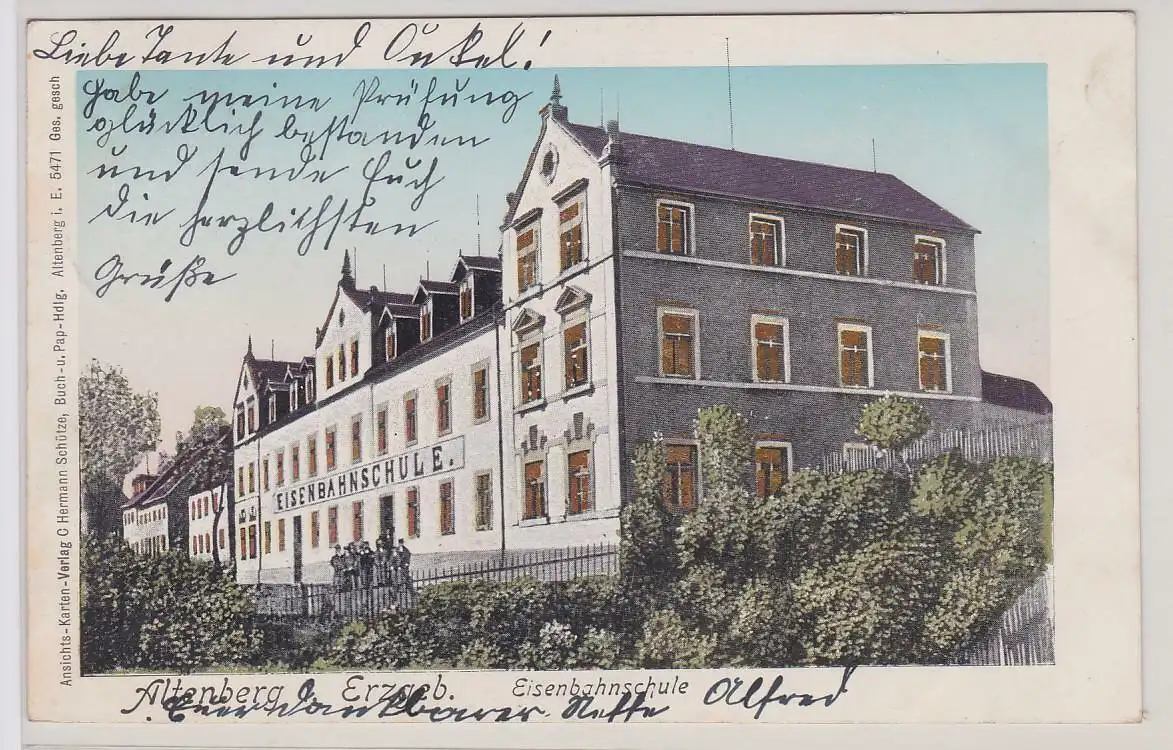 Liebe Tante und Onkel!
Habe meine Prüfung
glücklich bestanden
und sende Euch
die herzlichsten
Grüße
EISENBAHNSCHULE.
Altenberg i. Erzgeb. Eisenbahnschule
Euer dankbarer Neffe Alfred
Ansichts-Karten-Verlag C Hermann Schütze, Buch-u. Pap-Hdlg. Altenberg i. E. 5471 Ges. gesch